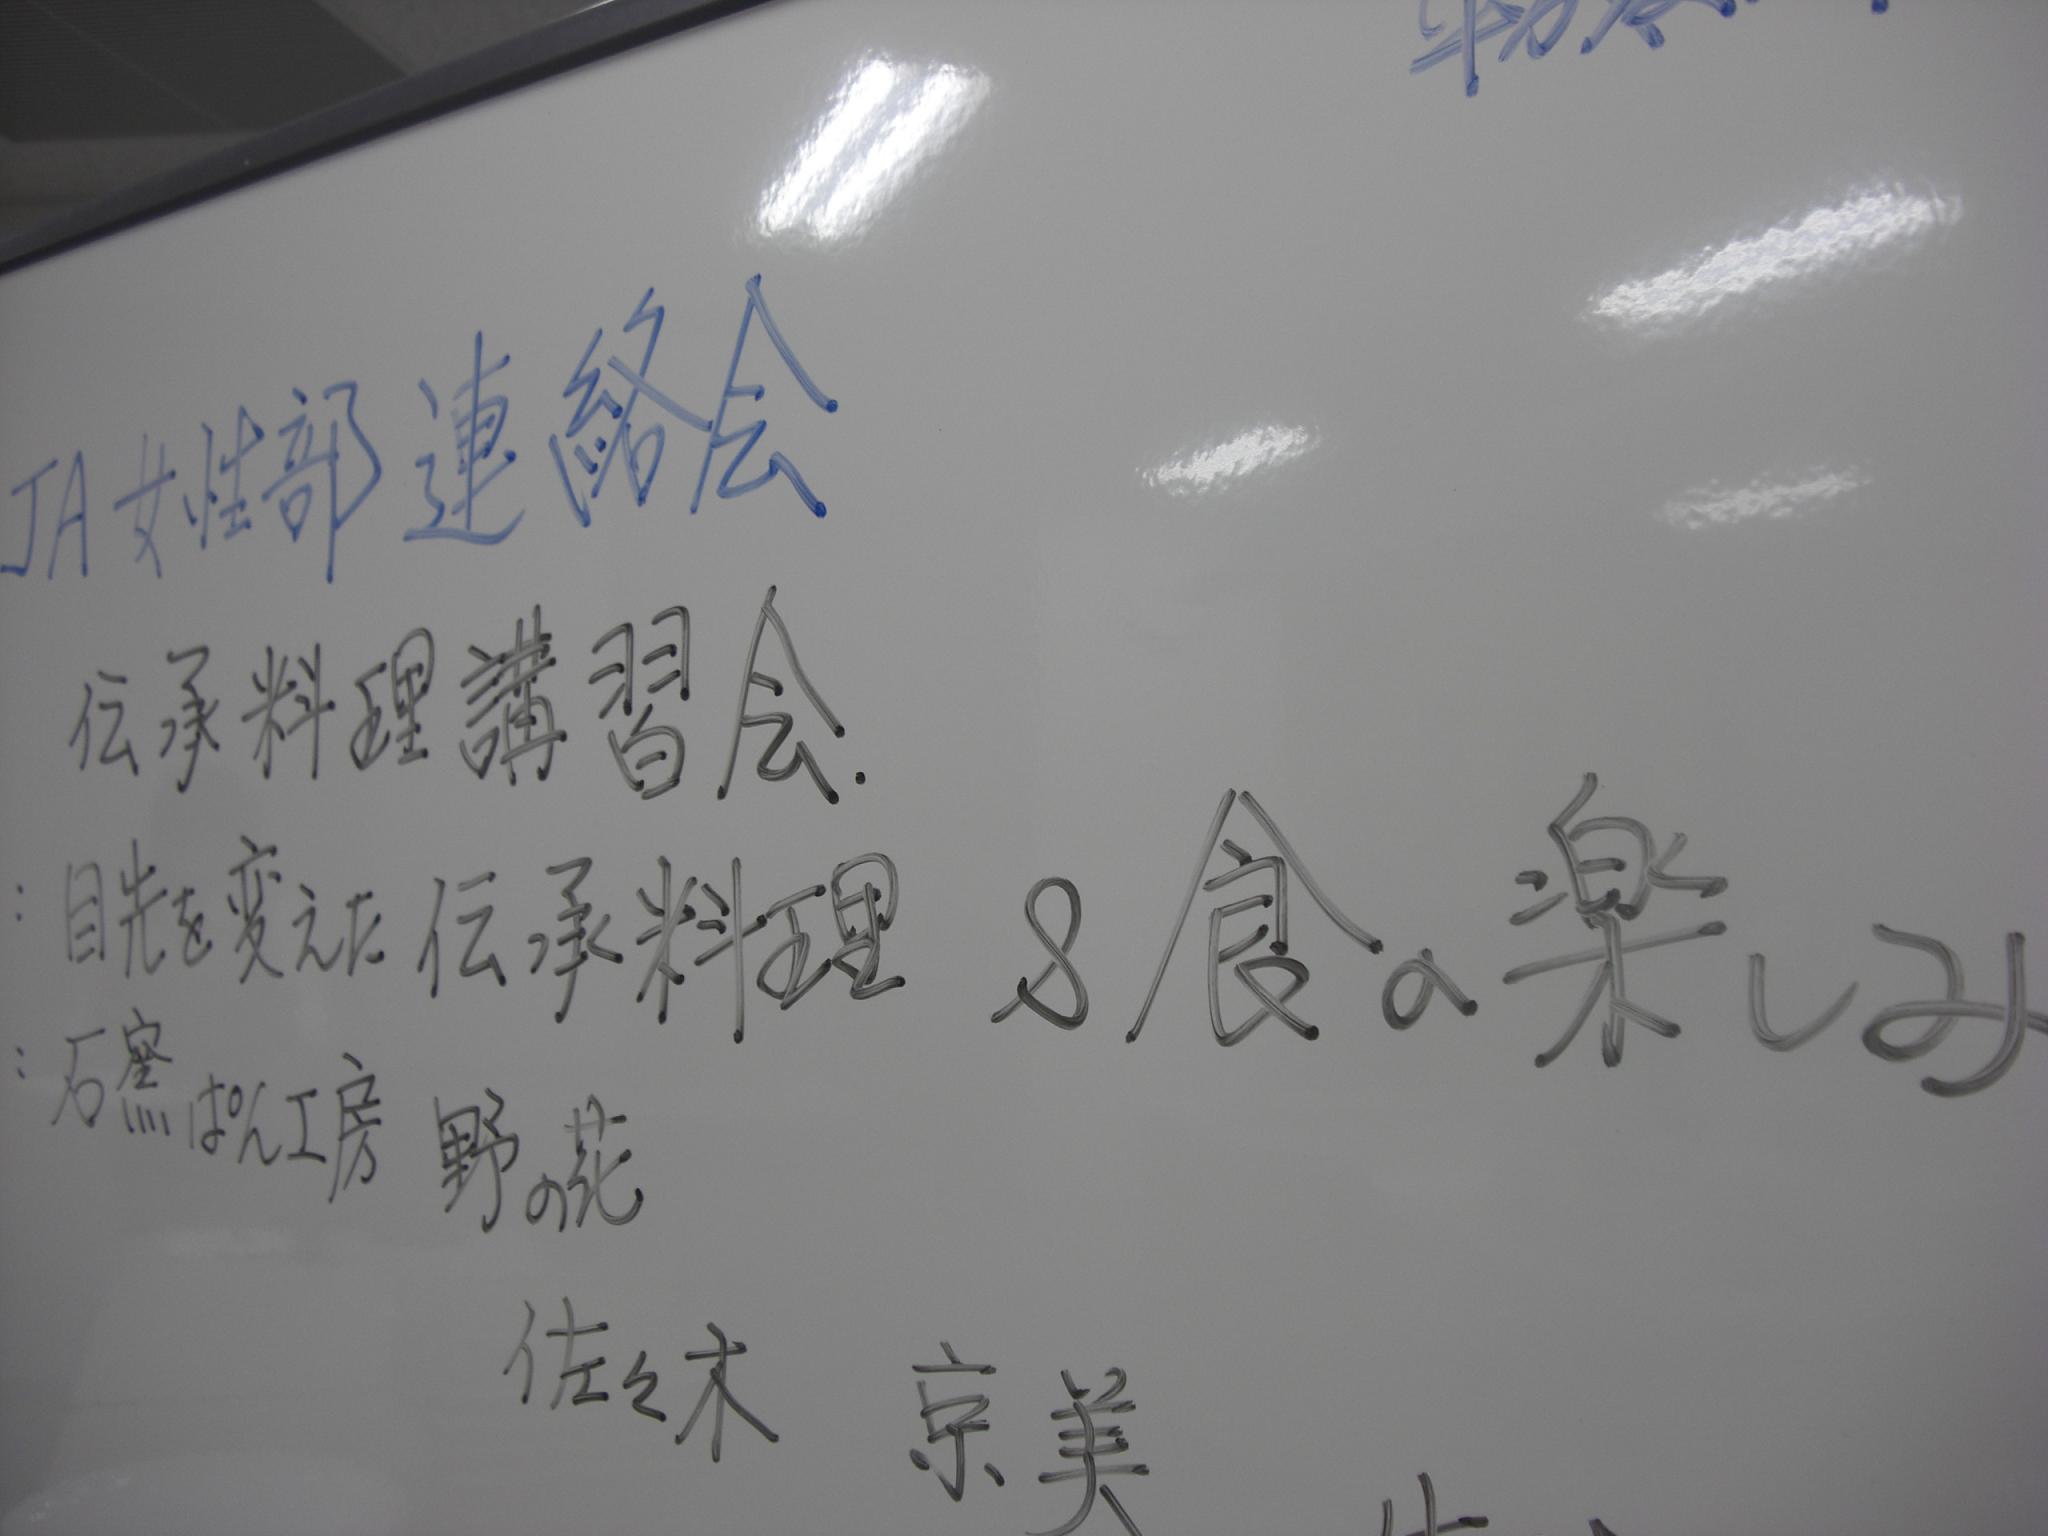 JA女性部 連絡会
伝承料理講習会.
:目先を変えた 伝承料理 & 食の楽しみ
:石窯ぱん工房 野の花
佐々木 京美